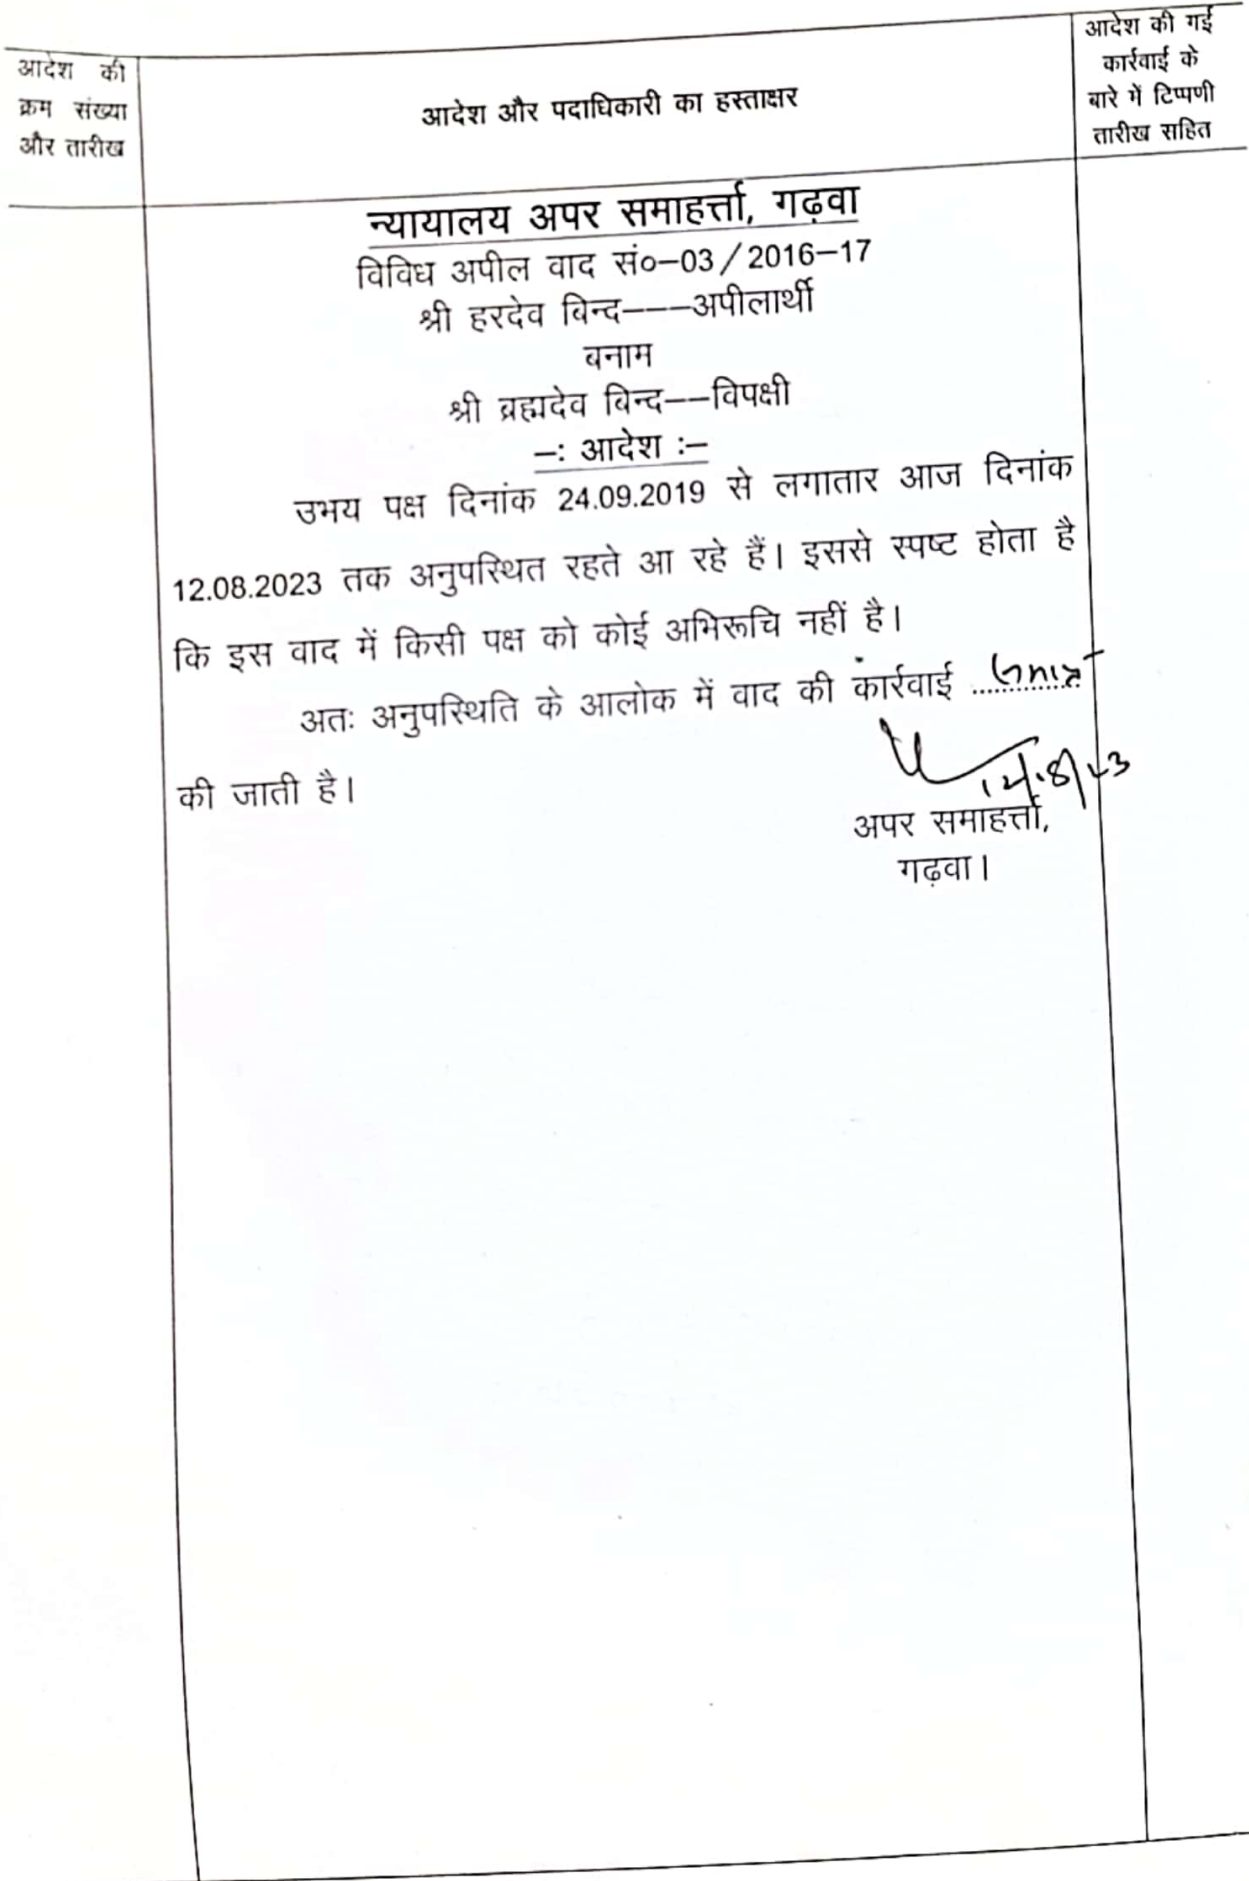 आदेश की
क्रम संख्या
और तारीख
आदेश और पदाधिकारी का हस्ताक्षर
आदेश की गई
कार्रवाई के
बारे में टिप्पणी
तारीख सहित
न्यायालय अपर समाहर्त्ता, गढ़वा
विविध अपील वाद सं०–03/2016–17
श्री हरदेव बिन्द–––अपीलार्थी
बनाम
श्री ब्रह्मदेव बिन्द––विपक्षी
–: आदेश :–
उभय पक्ष दिनांक 24.09.2019 से लगातार आज दिनांक
12.08.2023 तक अनुपस्थित रहते आ रहे हैं। इससे स्पष्ट होता है
कि इस वाद में किसी पक्ष को कोई अभिरूचि नहीं है।
अतः अनुपस्थिति के आलोक में वाद की कार्रवाई
की जाती है।
अपर समाहर्त्ता,
गढ़वा।